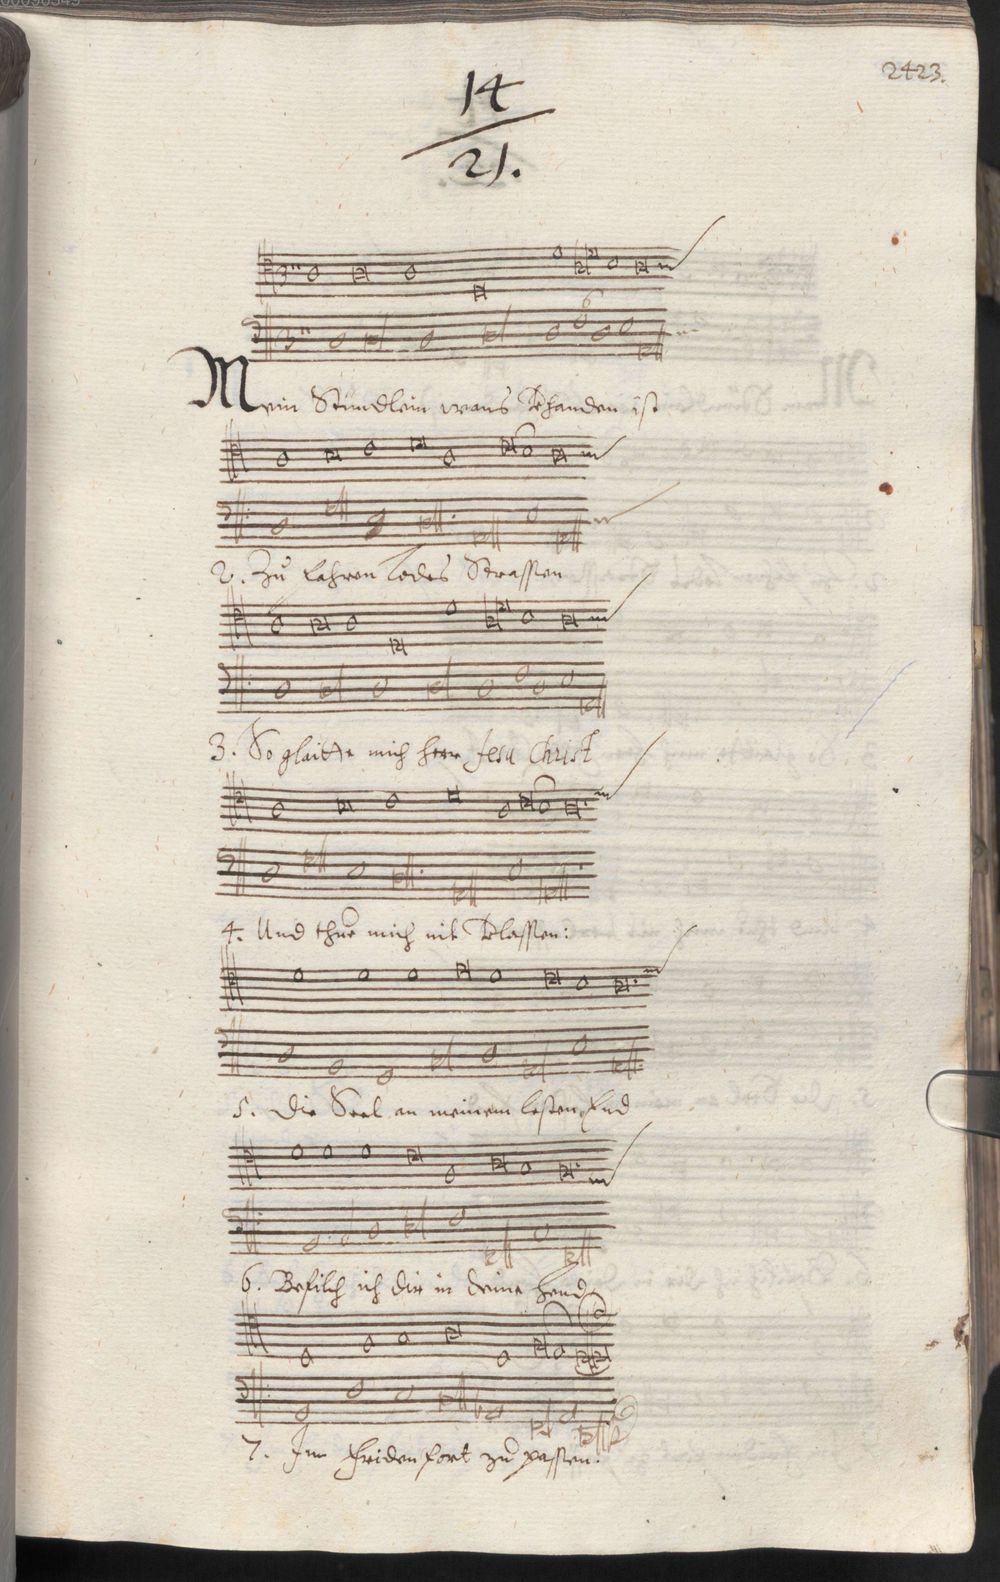 2423.
14
21.
Mein Stündlein wans Vhanden ist
2. Zu fahren Todes Strassen
3. So glaitte mich herr Jesu Christ
4. Und thue mich nit Vlassen:
5. Die Seel an meinem lesten End
6. Befilch ich dir in deine hend
7. Im friden fort zu passen.